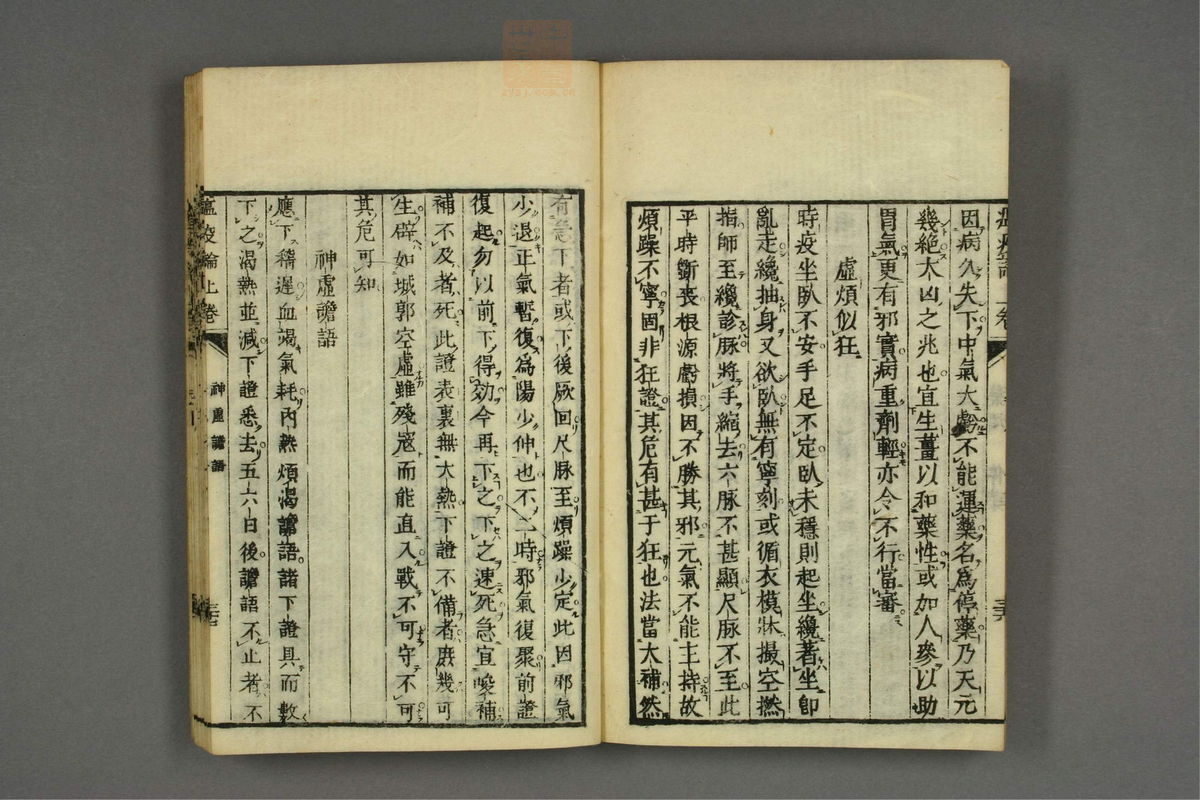 因病久失下中氣大虧不能運藥名為停藥乃天元
幾絕大凶之兆也宜生薑以和藥性或加人參以助
胃氣更有邪實病重劑輕亦令不行當審
虛煩似狂
時疫坐臥不安手足不定臥未穩則起坐纔著坐卽
亂走纔抽身又欲臥無有寧刻或循衣模牀撮空撚
指師至纔診脉將手縮去六脉不甚顯尺脉不至此
平時斵喪根源虧損因不勝其邪元氣不能主持故
煩躁不寧固非狂證其危有甚于狂也法當大補然
有急下者或下後厥回尺脉至煩躁少定此因邪氣
少退正氣暫復爲陽少伸也不二時邪氣復聚前證
復起勿以前下得効今再下之下之速死急宜峻補
補不及者死此證表裏無大熱下證不備者庶幾可
生辟如城郭空虛雖殘寇而能直入戰不可守不可
其危可知
神虛譫語
應下稽遲血竭氣耗內熱煩渴譫語諸下證具而數
下之渴熱並減下證悉去五六日後譫語不止者不
瘟疫論上卷
神虛譫語